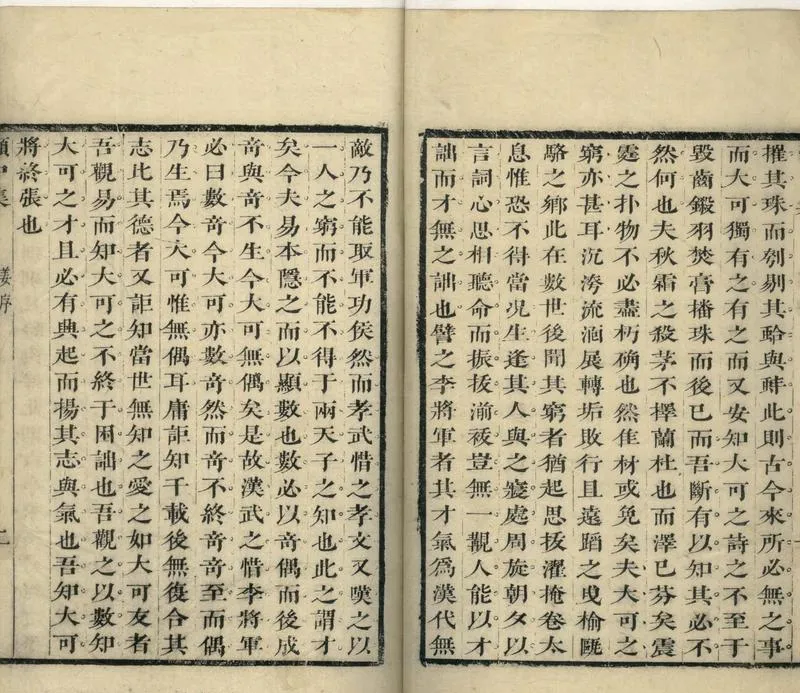 摧其珠而刳剔其蛤與蚌此則古今來所必無之事
而大可獨有之有之而又安知大可之詩之不至于
毀齒鍛羽焚膏播珠而後已而吾斷有以知其必不
然何也夫秋霜之殺茅不擇蘭杜也而澤已芬矣震
霆之扑物不必盡朽确也然隹材或免矣夫大可之
窮亦甚耳沉涔流湎展轉垢敗行且遠蹈之曳榆甌
駱之鄉此在數世後聞其窮者猶起思拔濯掩卷太
息惟恐不得當况生逢其人與之寢處周旋朝夕以
言詞心思相聽命而振拔湔祓豈無一覯人能以才
詘而才無之詘也譬之李將軍者其才氣為漢代無
敵乃不能取軍功侯然而孝武惜之孝文又嘆之以
一人之窮而不能不得于兩天子之知也此之謂才
矣今夫易本隱之而以顯數也數必以奇偶而後成
奇與奇不生今大可無偶矣是故漢武之惜李將軍
必曰數奇今大可亦數奇然而奇不終奇奇至而偶
乃生焉今大可惟無偶耳庸詎知千載後無復合其
志此其德者又詎知當世無知之愛之如大可友者
吾觀易而知大可之不終于困詘也吾觀之以數知
大可之才且必有興起而揚其志與氣也吾知大可
將終張也
序